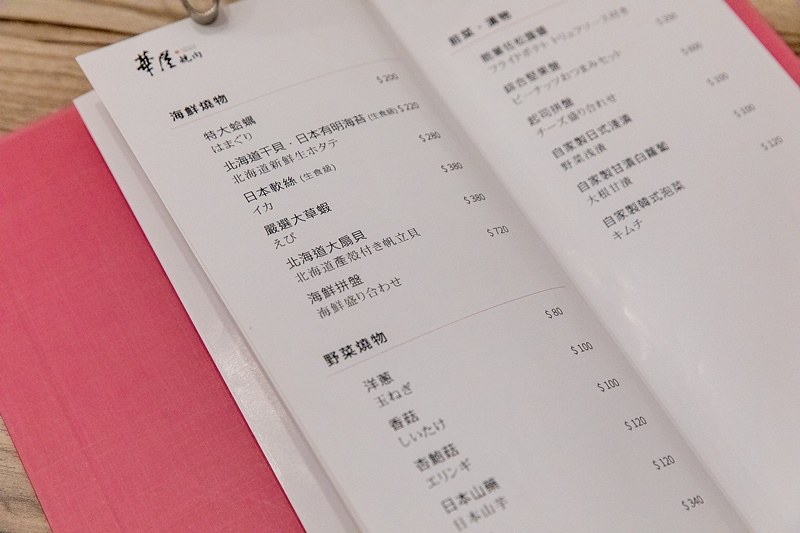 華隆 燒肉
海鮮燒物
特大蛤蠣 $200
はまぐり
北海道干貝・日本有明海苔 (生食級) $220
北海道新鮮生ホタテ
日本軟絲 (生食級) $280
イカ
嚴選大草蝦 $380
えび
北海道大扇貝 $380
北海道產殻付き帆立貝
海鮮拼盤 $720
海鮮盛り合わせ
野菜燒物
洋蔥 $80
玉ねぎ
香菇 $100
しいたけ
杏鮑菇 $100
エリンギ
日本山藥 $120
日本山芋
$120
$340
前菜・漬物
フライドポテトトリュフソース付き
綜合堅果盤 $200
ピーナッツおつまみセット
起司拼盤 $600
チーズ盛り合わせ
自家製日式淺漬 $100
野菜浅漬
自家製甘漬白蘿蔔 $100
大根甘漬
自家製韓式泡菜 $120
キムチ